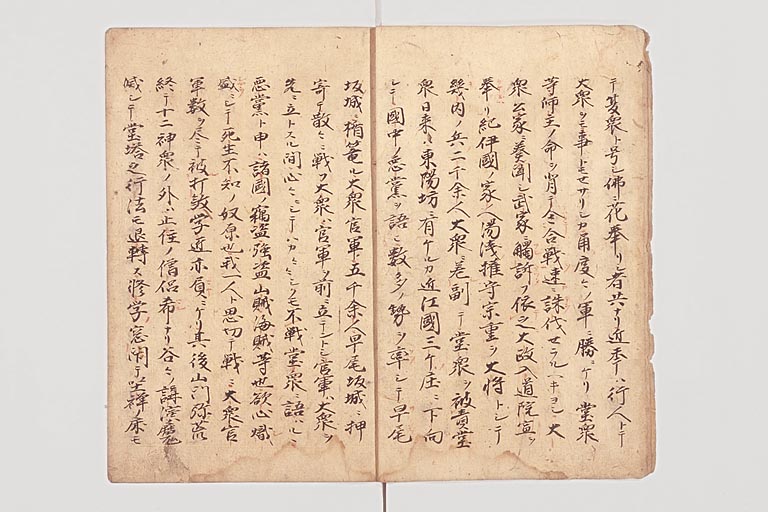 テ夏衆ト号シ佛ニ花奉リシ者共ナリ近来ハ行人トテ
大衆ヲモ事トモセサリシカ角度々ノ軍ニ勝ニケリ堂衆
等師主ノ命ヲ背テ企合戦速ニ誅伐セラルヘキヨシ大
衆公家ニ奏聞シ武家ニ觸訴フ依之大政入道院宣ヲ
奉リ紀伊國ノ家人湯浅権守宗重ヲ大将トシテ
畿内ノ兵二千余人大衆ニ差副テ堂衆ヲ被責堂
衆日来ハ東陽坊ニ有ケルカ近江國三ケ庄ニ下向
シテ國中ノ悪黨ヲ語ヒ数多ノ勢ヲ率シテ早尾
坂城ニ楯篭ル大衆官軍五千余人早尾坂城ニ押
寄テ散々ニ戦フ大衆ハ官軍ヲ前ニ立ントシ官軍ハ大衆ヲ
先ニ立トスル間心々ニシテハカ々々シクモ不戦堂衆ニ語ハルヽ
悪黨ト申ハ諸國ノ窃盗強盗山賊海賊等也欲心熾
盛ニシテ死生不知ノ奴原也我一人ト思切テ戦ニ大衆官
軍数ヲ尽テ被打殺学近亦負ニケリ其後山門弥荒
終テ十二神衆ノ外ハ止住ノ僧侶希ナリ谷々ノ講演磨
滅シテ堂塔之行法モ退轉ス修学窓閇テ坐禅ノ床モ